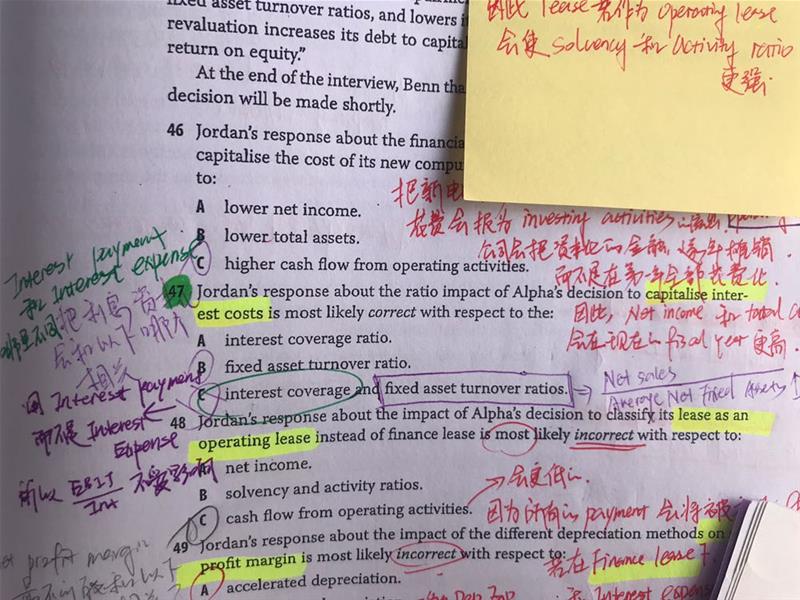 fixed asset turnover ratios, and lowers i
revaluation increases its debt to capita
return on equity.”
At the end of the interview, Benn tha
decision will be made shortly.
因此 lease 若作为 operating lease
会使 solvency 和 activity ratio
更强.
46 Jordan’s response about the financia
capitalise the cost of its new compu
to:
A lower net income.
B lower total assets.
C higher cash flow from operating activities.
把新电
花费会报为 investing activities
公司会把资本化的金额, 逐年摊销.
而不是在第一年全部花费化.
47 Jordan’s response about the ratio impact of Alpha’s decision to capitalise inter-
est costs is most likely correct with respect to the:
因此, Net income 和 total
会在现在的 fiscal year 更高.
A interest coverage ratio.
B fixed asset turnover ratio.
C interest coverage and fixed asset turnover ratios.
⇒ Net sales
Average Net Fixed Assets ↑
Interest payment
和 Interest expense
哪里不同
把利息
会和以下
相关
因 Interest payment
而不是 Interest
Expense
所以 EBIT
Int
不受影响
48 Jordan’s response about the impact of Alpha’s decision to classify its lease as an
operating lease instead of finance lease is most likely incorrect with respect to:
A net income.
B solvency and activity ratios.
C cash flow from operating activities.
→ 会更低.
因为所有的 payment 会将被
49 Jordan’s response about the impact of the different depreciation methods on
profit margin is most likely incorrect with respect to:
若在 Finance lease 下
A accelerated depreciation.
Interest expens
profit margin